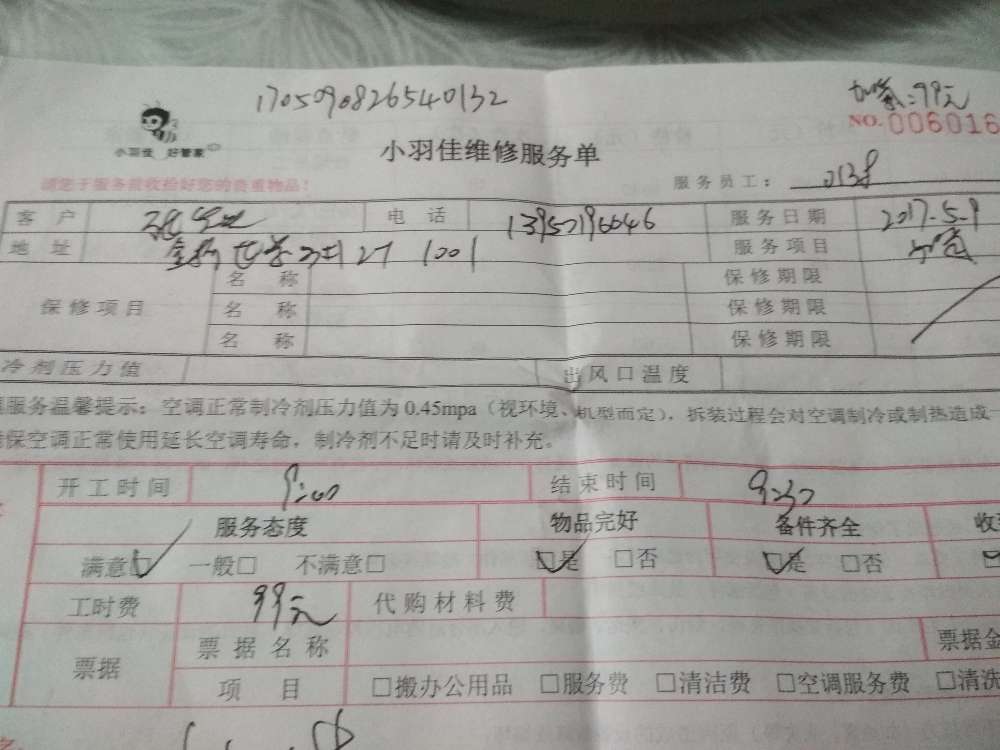 1705090826540132
加氟:99元
NO.006016
小羽佳 好管家
小羽佳维修服务单
请您于服务前收拾好您的贵重物品!
服务员工: 0138
客户 电话 13957196646 服务日期 2017.5.9
地址 27 1001 服务项目 加氟
保修项目 名称 保修期限
名称 保修期限
名称 保修期限
冷剂压力值 出风口温度
服务温馨提示:空调正常制冷剂压力值为0.45mpa(视环境、机型而定),拆装过程会对空调制冷或制热造成一
保空调正常使用延长空调寿命,制冷剂不足时请及时补充。
开工时间 9:00 结束时间 9:30
服务态度 物品完好 备件齐全 收
满意☑ 一般□ 不满意□ ☑是 □否 ☑是 □否
工时费 99元 代购材料费
票据 票据名称 票据金
项目 □搬办公用品 □服务费 □清洁费 □空调服务费 □清洗